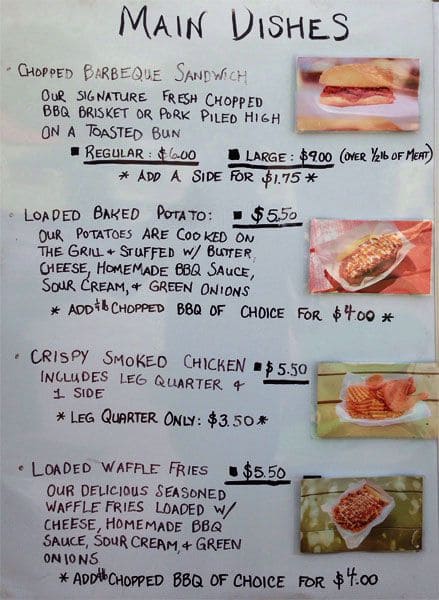 MAIN DISHES
• CHOPPED BARBEQUE SANDWICH
OUR SIGNATURE FRESH CHOPPED
BBQ BRISKET OR PORK PILED HIGH
ON A TOASTED BUN
■ REGULAR: $6.00 ■ LARGE: $9.00 (OVER 1/2 lb OF MEAT)
* ADD A SIDE FOR $1.75 *
• LOADED BAKED POTATO: ■ $5.50
OUR POTATOES ARE COOKED ON
THE GRILL + STUFFED W/ BUTTER,
CHEESE, HOMEMADE BBQ SAUCE,
SOUR CREAM, + GREEN ONIONS
* ADD CHOPPED BBQ OF CHOICE FOR $4.00 *
• CRISPY SMOKED CHICKEN ■ $5.50
INCLUDES LEG QUARTER &
1 SIDE
* LEG QUARTER ONLY: $3.50 *
• LOADED WAFFLE FRIES ■ $5.50
OUR DELICIOUS SEASONED
WAFFLE FRIES LOADED W/
CHEESE, HOMEMADE BBQ
SAUCE, SOUR CREAM, + GREEN
ONIONS
* ADD CHOPPED BBQ OF CHOICE FOR $4.00